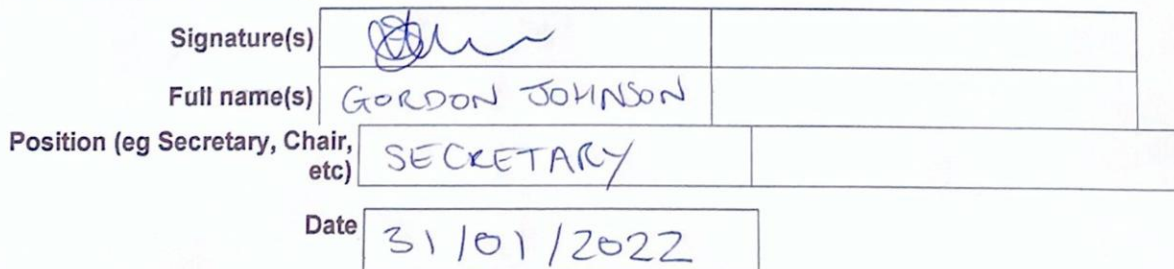 Signature(s)
Full name(s) GORDON JOHNSON
Position (eg Secretary, Chair, etc) SECRETARY
Date 31/01/2022